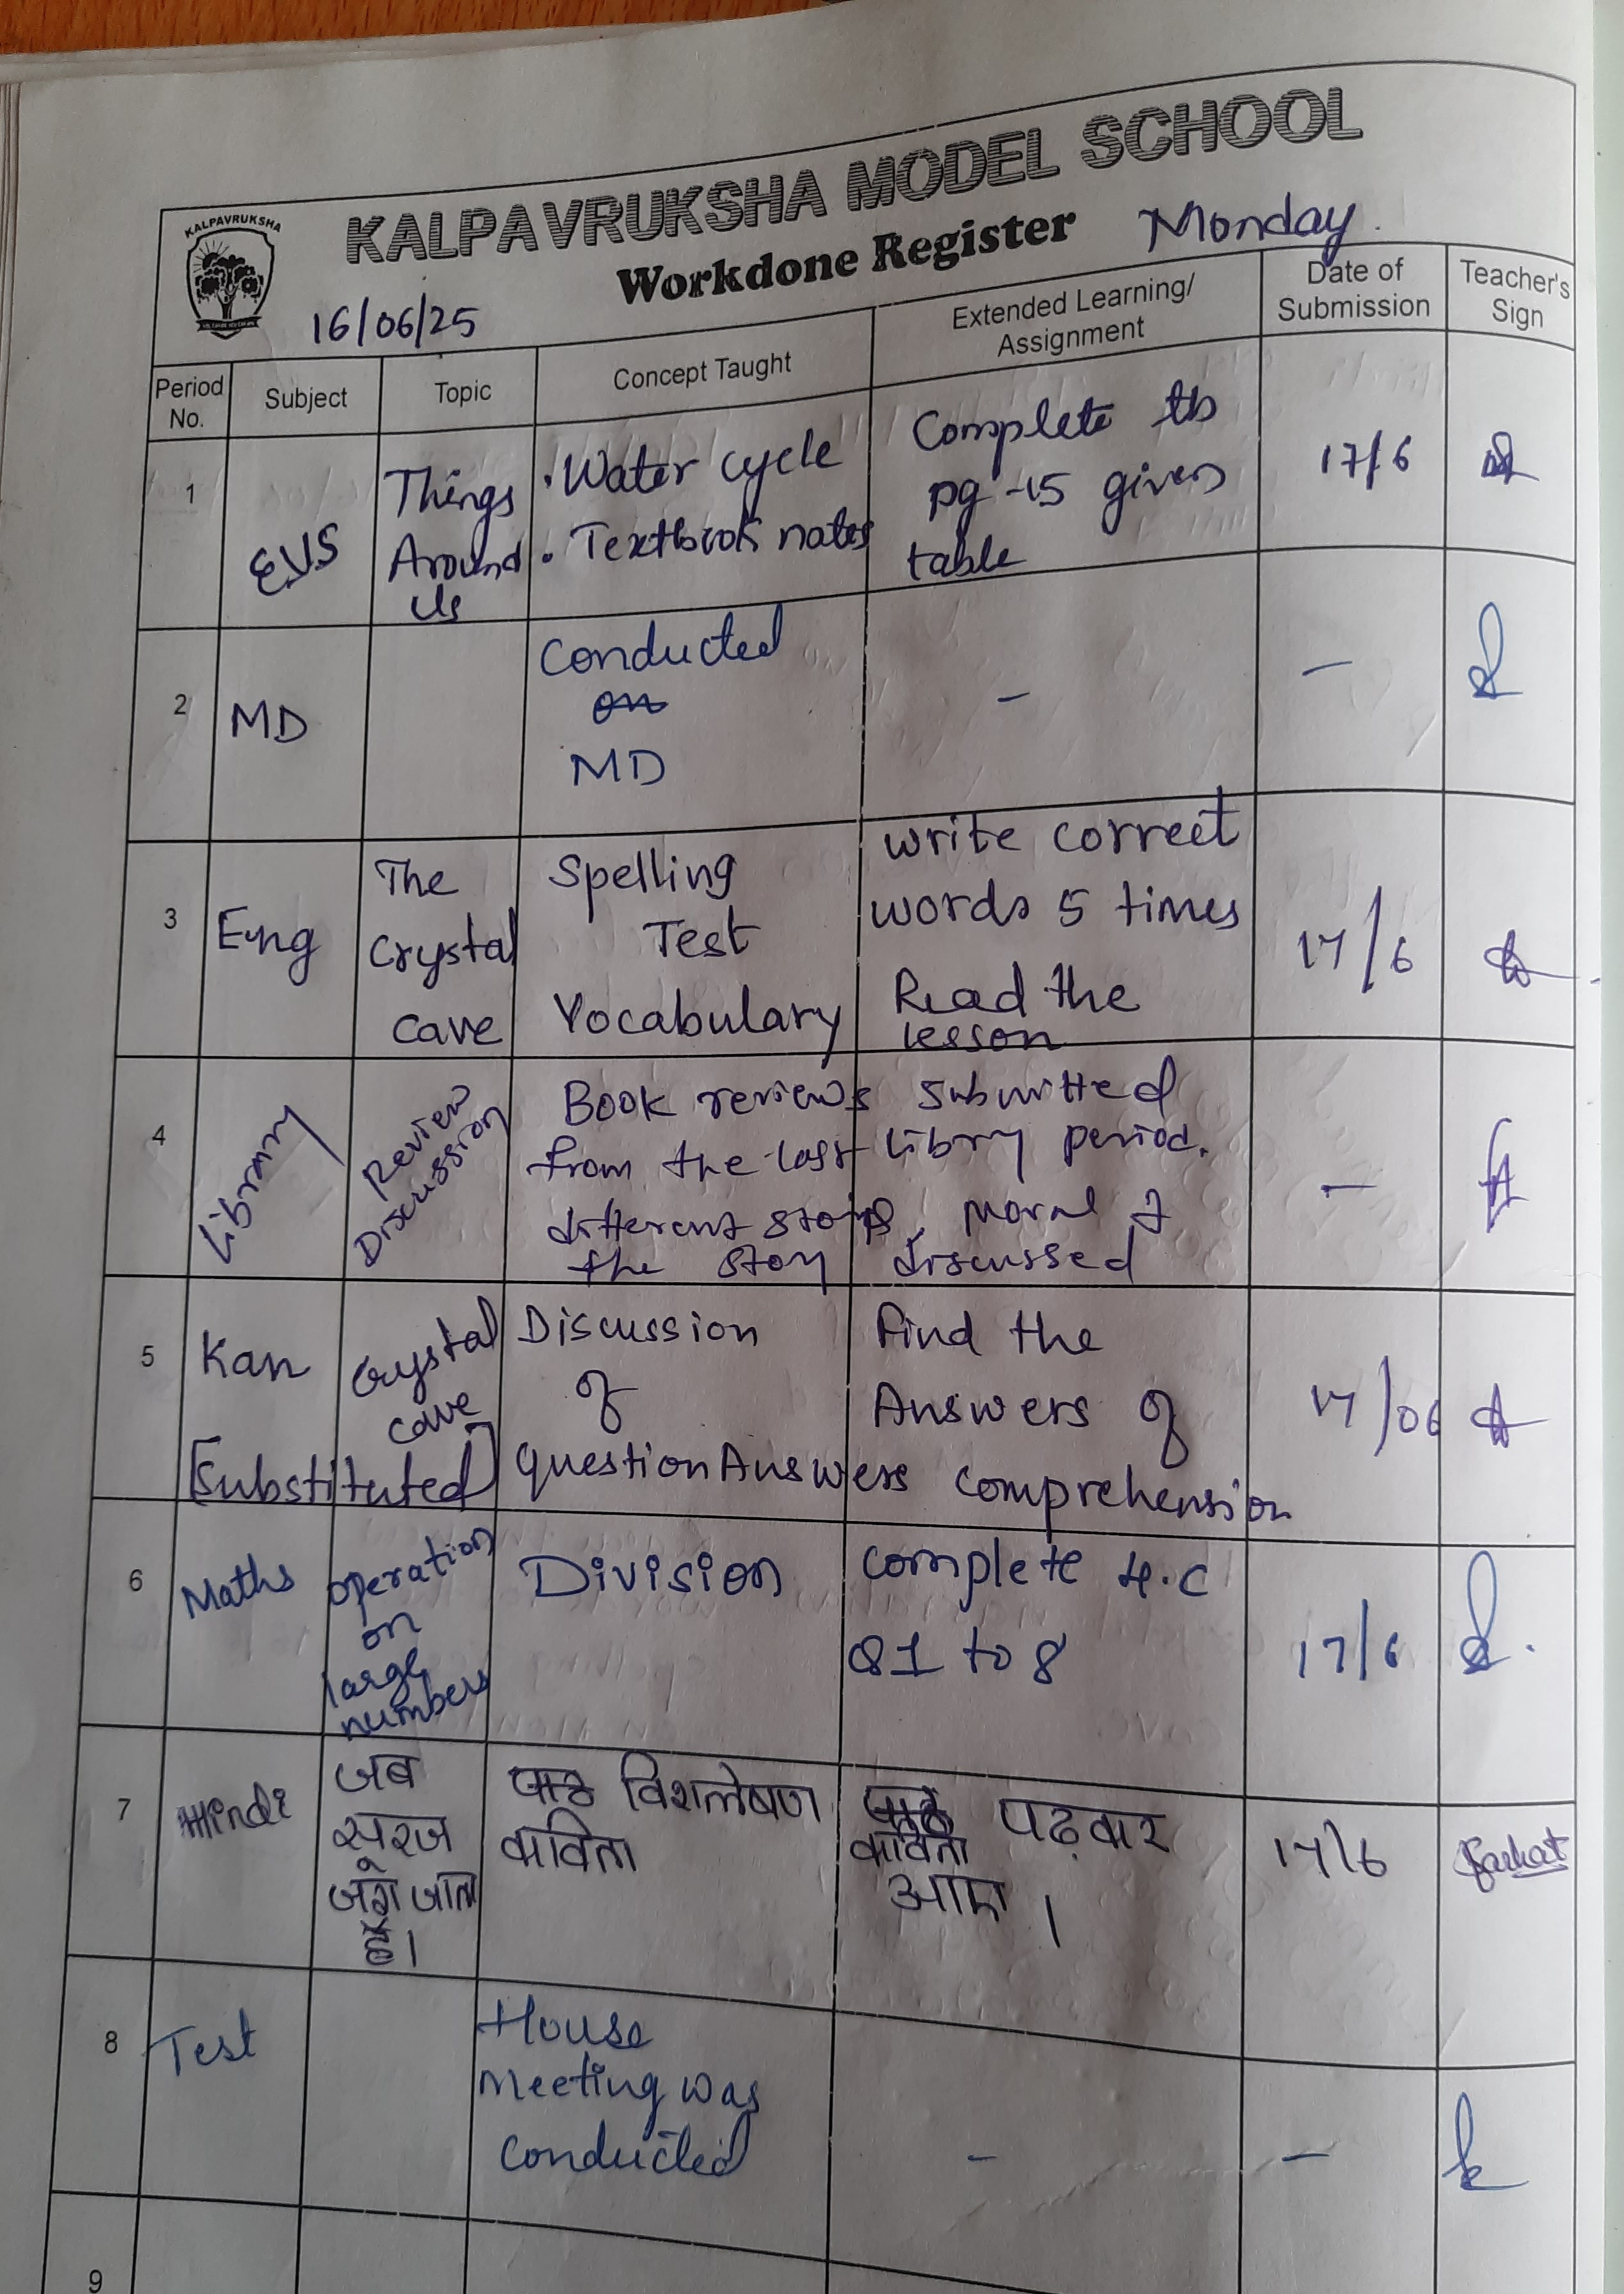 KALPAVRUKSHA MODEL SCHOOL
KALPAVRUKSHA
Workdone Register Monday.
16/06/25
Period No. Subject Topic Concept Taught Extended Learning/ Assignment Date of Submission Teacher's Sign
1 EVS Things Around Us
• Water cycle
• Textbook notes
Complete tb
pg-15 given
table
17/6
2 MD
Conducted
MD
-
-
3 Eng
The
Crystal
Cave
Spelling
Test
Vocabulary
write correct
words 5 times
Read the
lesson
17/6
4 Library
Review
Discussion
Book reviews submitted
from the last librry period.
different storys, moral of
the story discussed
-
5 Kan
Crystal
cave
[Substituted]
Discussion
of
question Answers
Find the
Answers of
comprehension
17/06
6 Maths
operation
on
large
numbers
Division
complete 4.C
Q1 to 8
17/6
7 Hindi
जब
सूरज
जग जाता
है।
विशलेषण
कविता
कविता पढ़कर
आए।
17/6 Farhat
8 Test
House
Meeting was
conducted
-
-
9